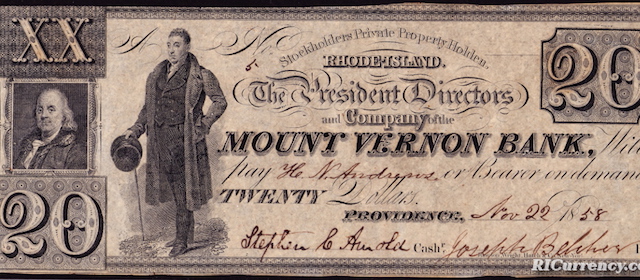 XX
A No.
5
Stockholders Private Property Holden.
RHODE-ISLAND.
20
The President Directors
and Company of the
MOUNT VERNON BANK, Will
pay H. N. Andrews or Bearer on demand
TWENTY Dollars.
20
PROVIDENCE, Nov 22 1858
Stephen C Arnold Cash. Joseph Belcher
RICurrency.co